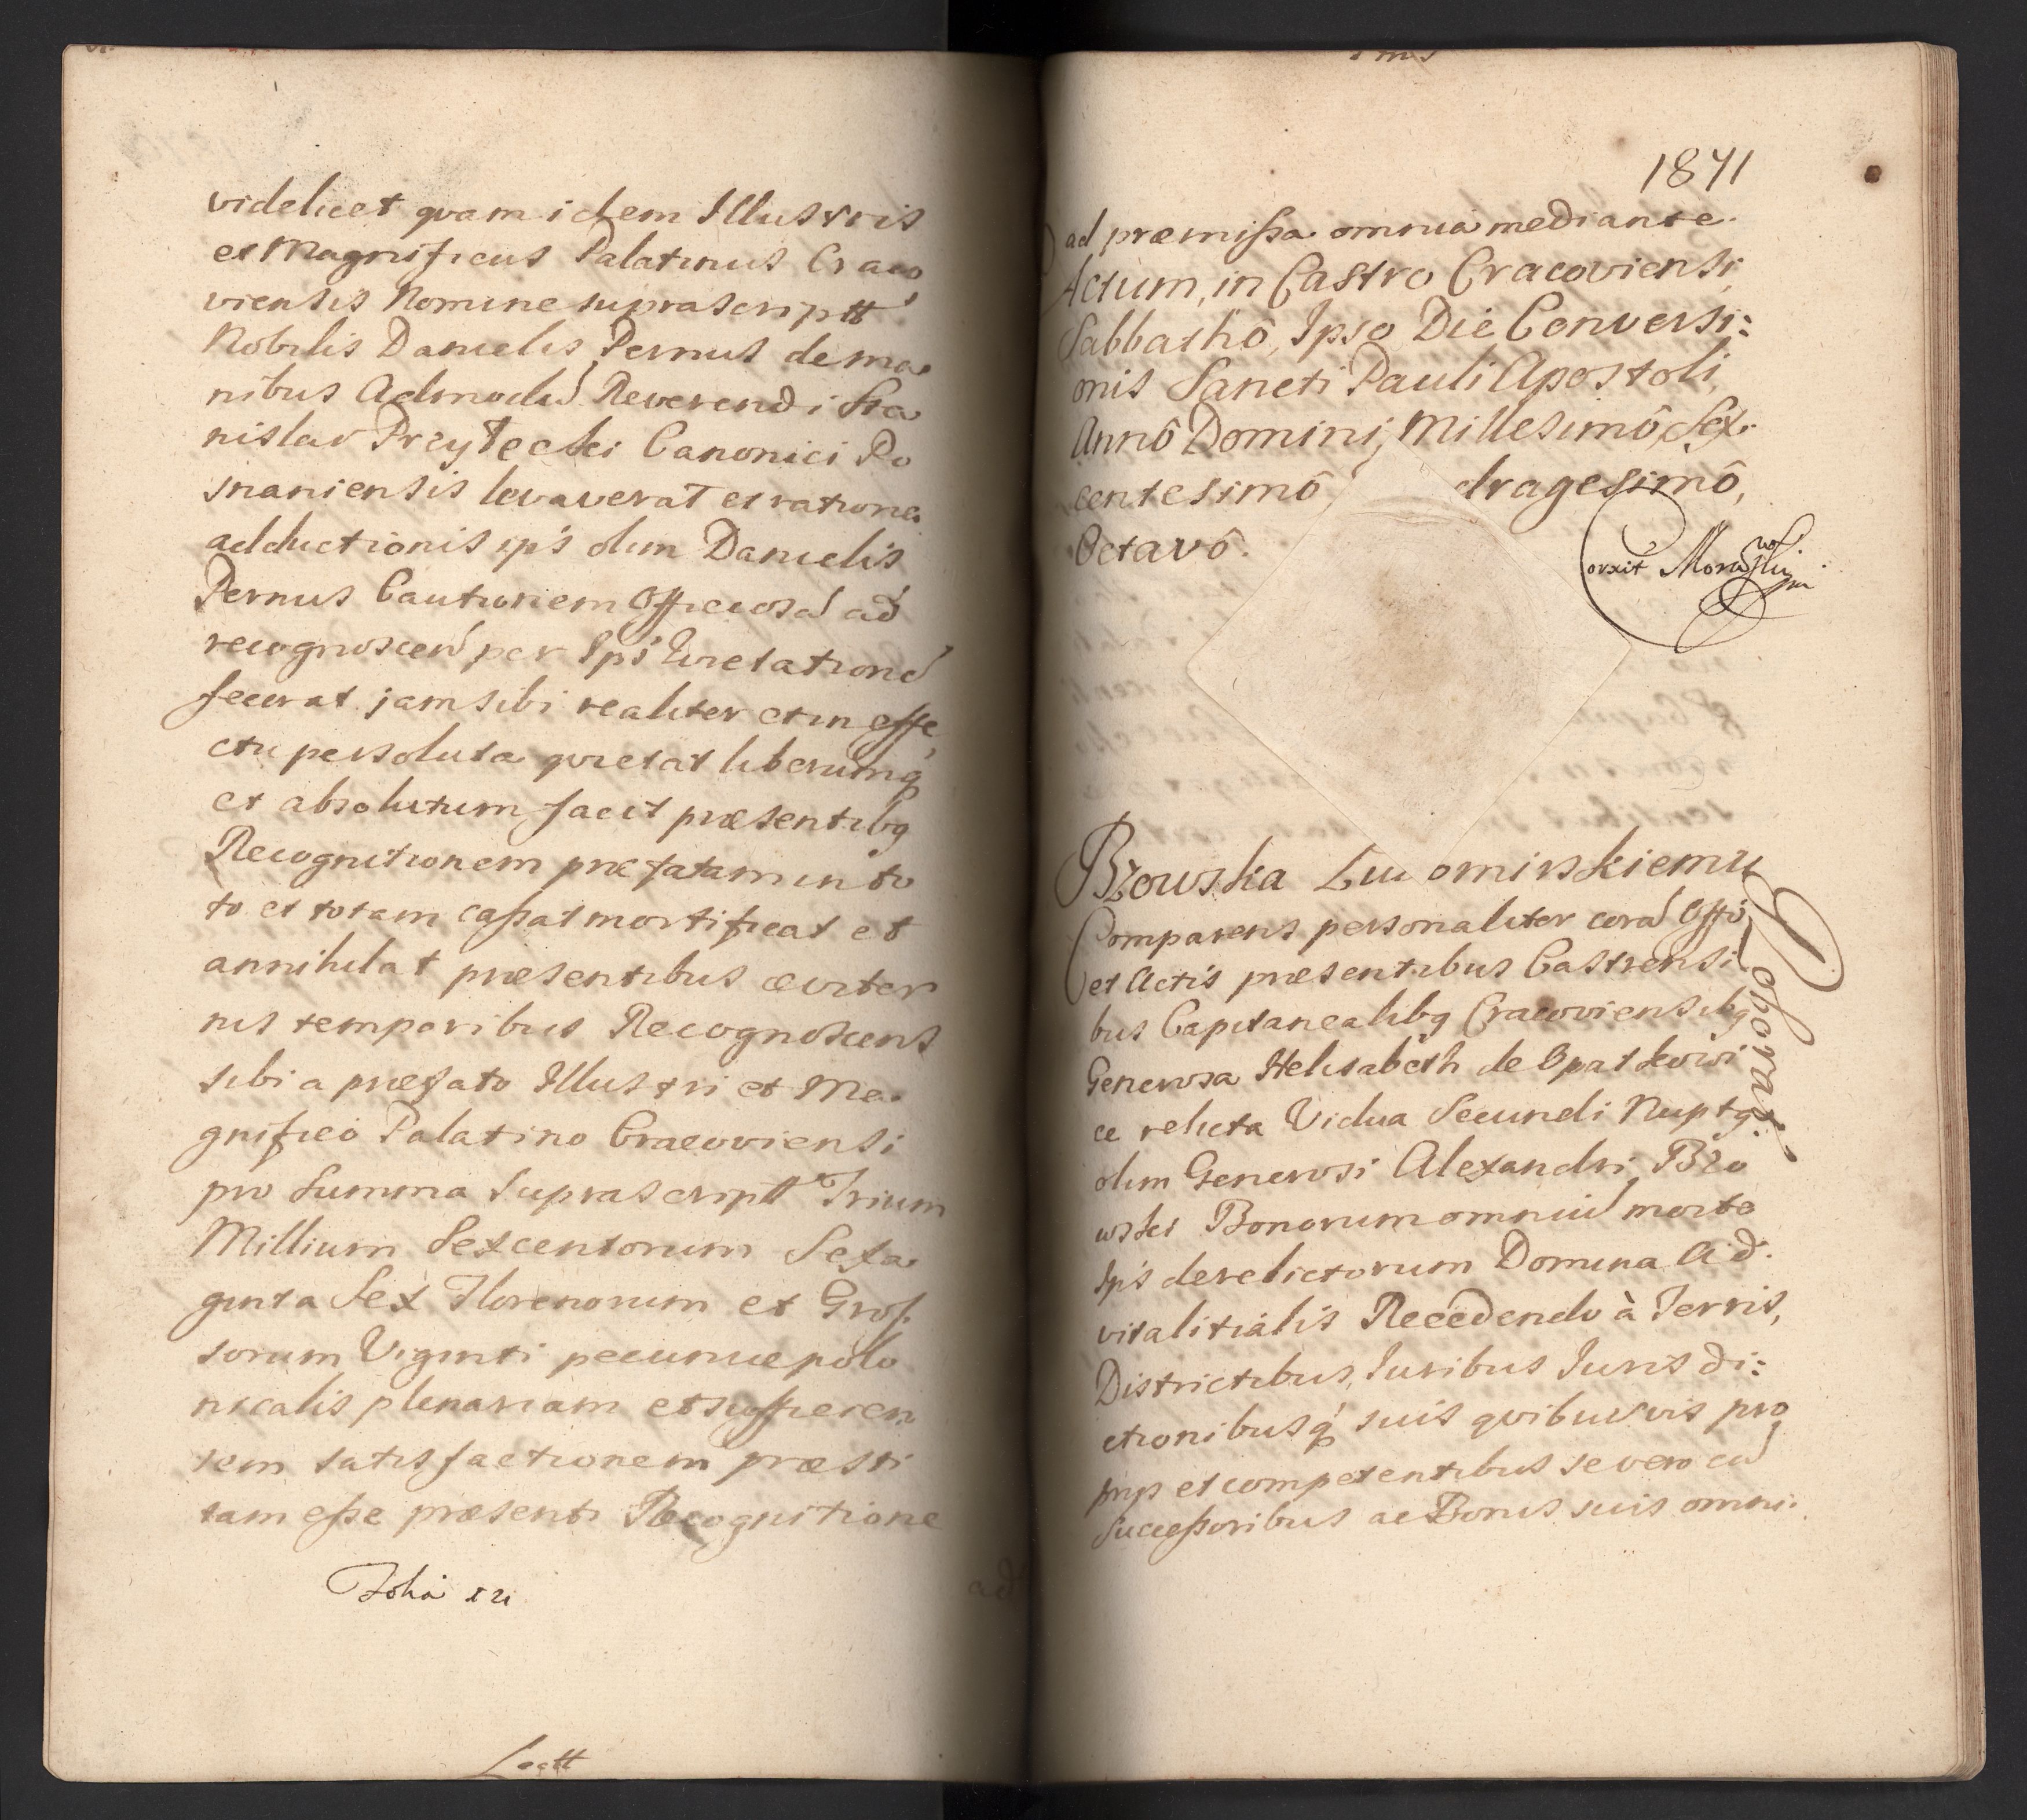 videlicet qvam idem Illustris
et Magnificus Palatinus Craco
viensis Nomine suprascriptt
Nobilis Danielis Pernus de ma
nibus Admodu Reverendi Sta
nislai Przyłecki Canonici Po
snaniensis levaverat et ratione
adductionis ips olim Danielis
Pernus Cautionem Officiosa ad
recognoscen per Ips
fecerat jam sibi realiter et in effe
ctu persoluta qvietat liberumq
et absolutum facit præsentibq
Recognitionem præfatam in to
to et totam cassat mortificat et
annihilat præsentibus æviter
nis temporibus Recognoscens
sibi a præfato Illustri et Ma
gnifico Palatino Cracoviensi
pro Summa Suprascriptt Trium
Millium Sexcentorum Sexa
ginta Sex Florenorum et Gros
sorum Viginti pecuniæ polo
nicalis plenariam et sufficien
tem satisfactionem præsti
tam esse præsenti Recognitione
Folia
Lectt
1841
ad præmissa omnia mediante.
Actum, in Castro Cracoviensi,
Sabbathô, Ipso Die Conversi:
onis Sancti Pauli Apostoli,
Annô Domini, Millesimô, Sex.
centesimô, dragesimô,
Octavô.
Bzowska Lu omirskiemu
Roborat.
Comparens personaliter cora Offo
et Actis præsentibus Castrensi
bus Capitanealibq Cracoviensibq
Generosa Helisabeth de Opatkowi
ce relicta Vidua Secundi Nuptq
olim Generosi Alexandri Bzo
wski Bonorum omniu morte
Ips derelictorum Domina Ad
vitalitialis Recedendo à Terris,
Districtibus, Iuribus Iurisdi:
ctionibusq suis qvibusvis pro
prijs et competentibus se vero cu
Successoribus ac Bonis suis omni